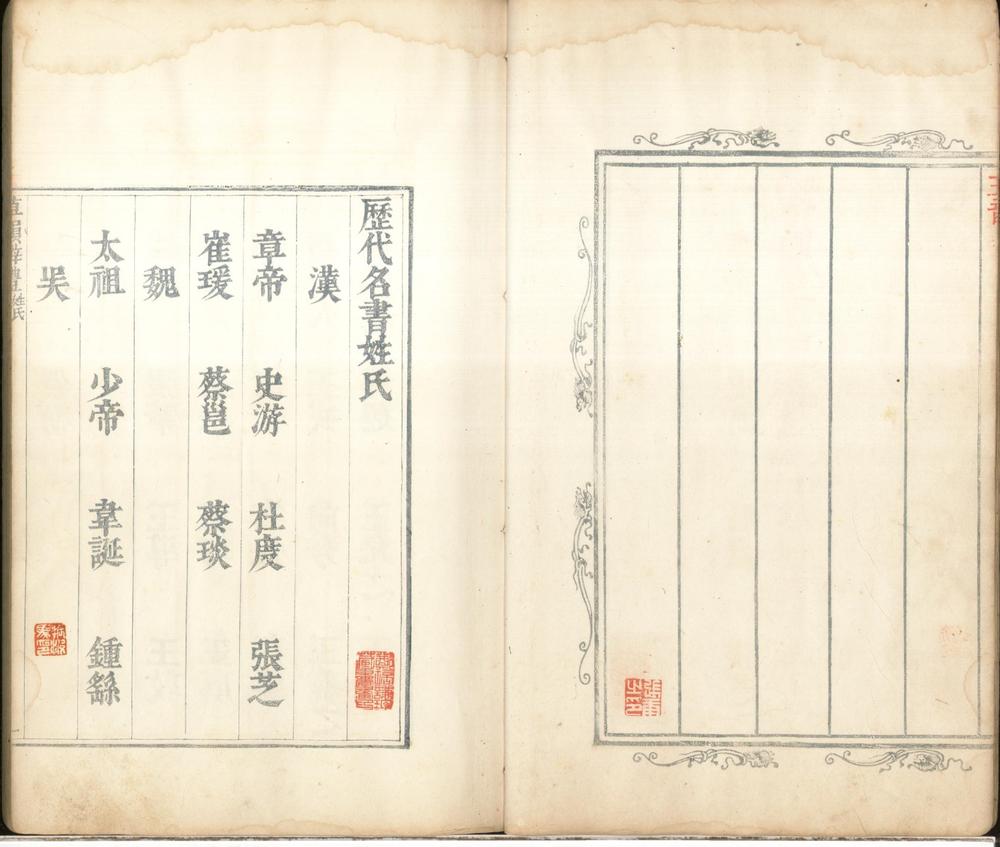 歷代名書姓氏
漢
章帝 史游 杜度 張芝
崔瑗 蔡邕 蔡琰
魏
太祖 少帝 韋誕 鍾繇
吴
姓氏